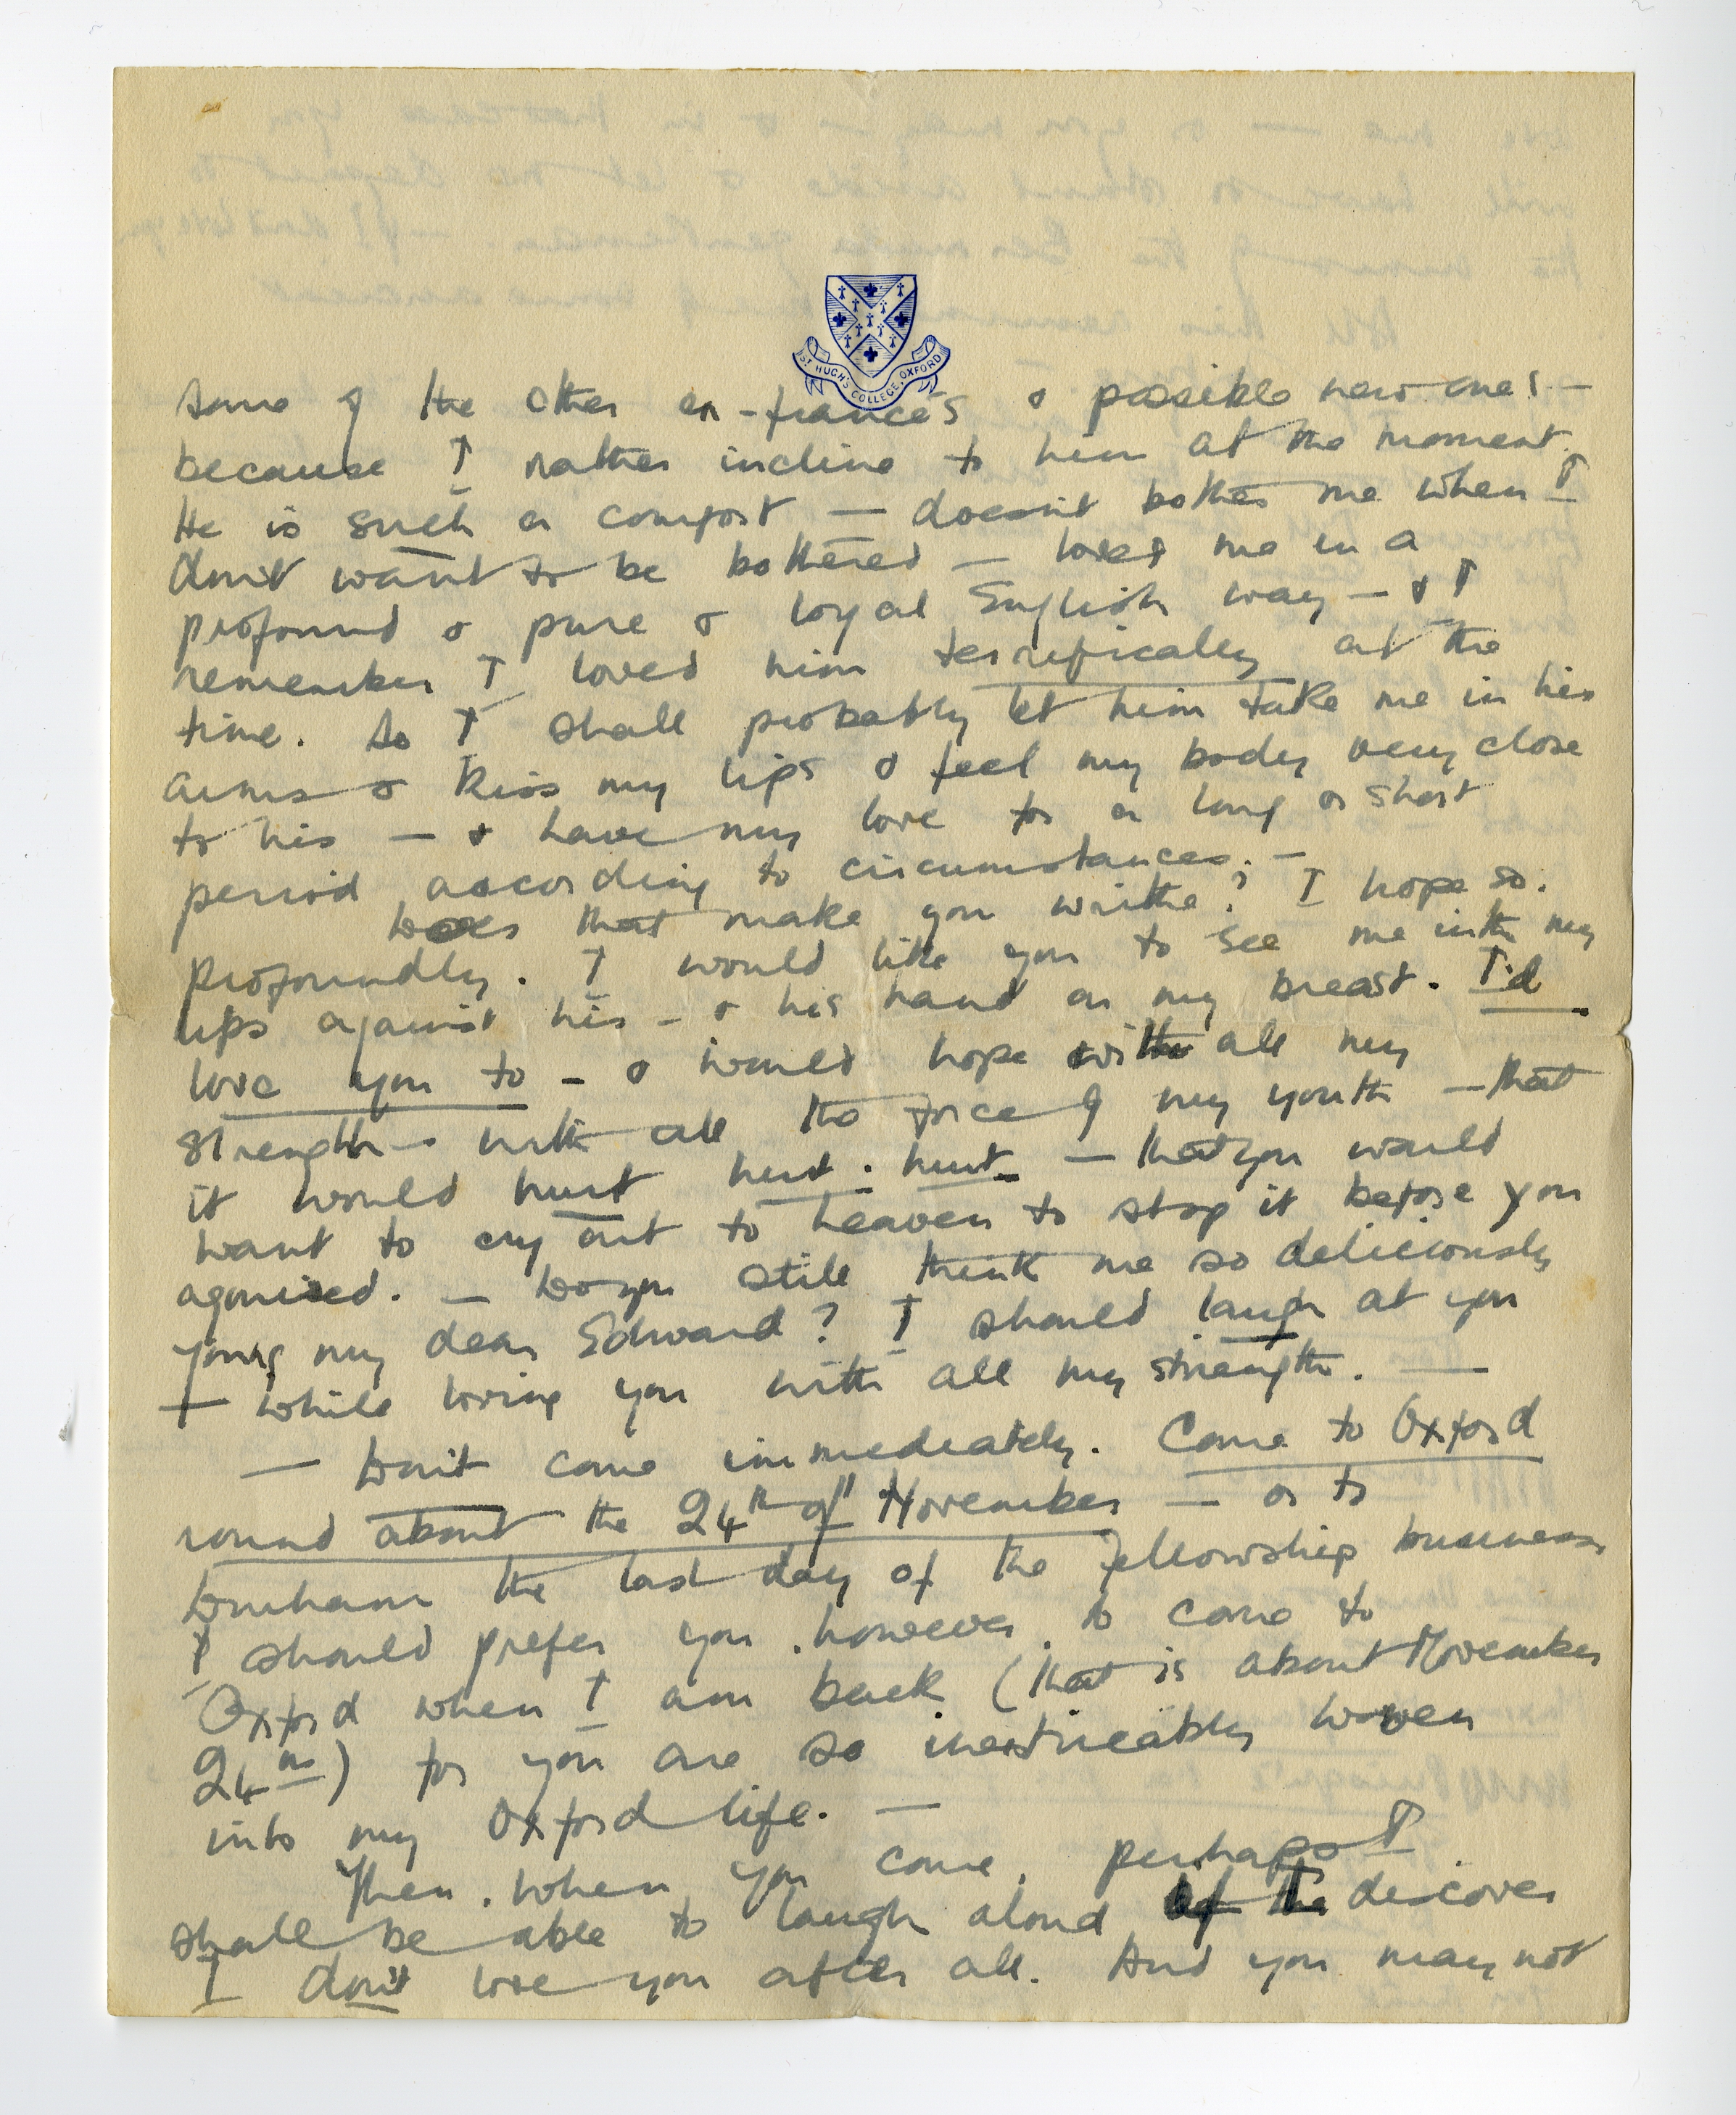 ST HUGH'S COLLEGE, OXFORD
some of the other ex-fiancés & possible new ones —
because I rather incline to him at the moment.
He is such a comfort — doesn't bother me when I
don't want to be bothered — loves me in a
profound & pure & loyal English way — & I
remember I loved him terrifically at the
time. So I shall probably let him take me in his
arms & kiss my lips & feel my body very close
to his — & have my love for a long or short
period according to circumstances. —
Does that make you writhe? I hope so.
profoundly. I would like you to see me with my
lips against his - & his hand on my breast. I'd
love you to - & would hope with all my
strength - with all the force of my youth — that
it would hurt hurt. hurt. — that you would
want to cry out to heaven to stop it before you
agonised. — Do you still think me so deliciously
young my dear Edward? I should laugh at you
— while loving you with all my strength. —
— Don't come immediately. Come to Oxford
round about the 24th of November — or to
Durham the last day of the Fellowship business
I should prefer you, however, to come to
Oxford when I am back (that is about November
24th) for you are so inextricably woven
into my Oxford life. —
Then, when you come, perhaps I
shall be able to laugh aloud & discover
I don't love you after all. And you may not